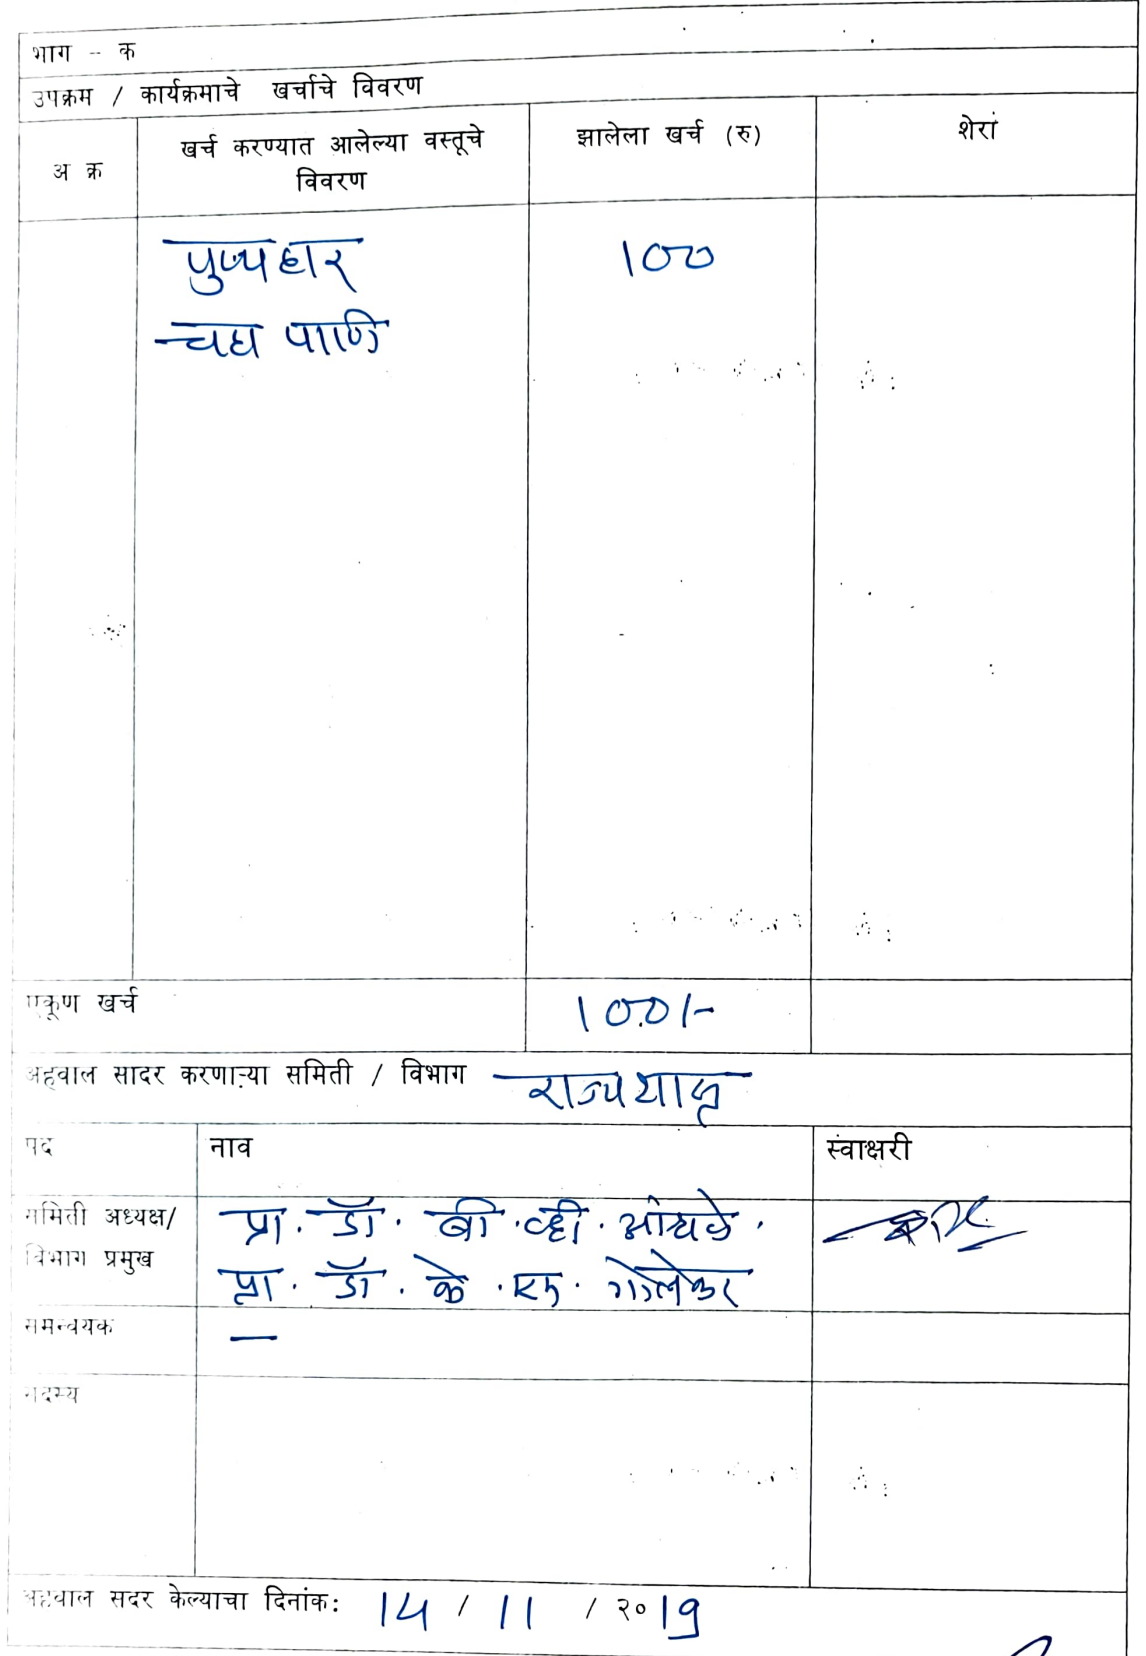 भाग - क
उपक्रम / कार्यक्रमाचे खर्चाचे विवरण
अ क्र
खर्च करण्यात आलेल्या वस्तूचे
विवरण
झालेला खर्च (रु)
शेरां
पुष्पहार 100
चहा पाणि
एकूण खर्च 100/-
अहवाल सादर करणाऱ्या समिती / विभाग राज्यशास्त्र
पद नाव स्वाक्षरी
समिती अध्यक्ष/ प्रा. डॉ. बी. व्ही.
विभाग प्रमुख प्रा. डॉ. के. एम. गोलेकर
समन्वयक —
सदस्य
अहवाल सदर केल्याचा दिनांक: 14 / 11 / २०19